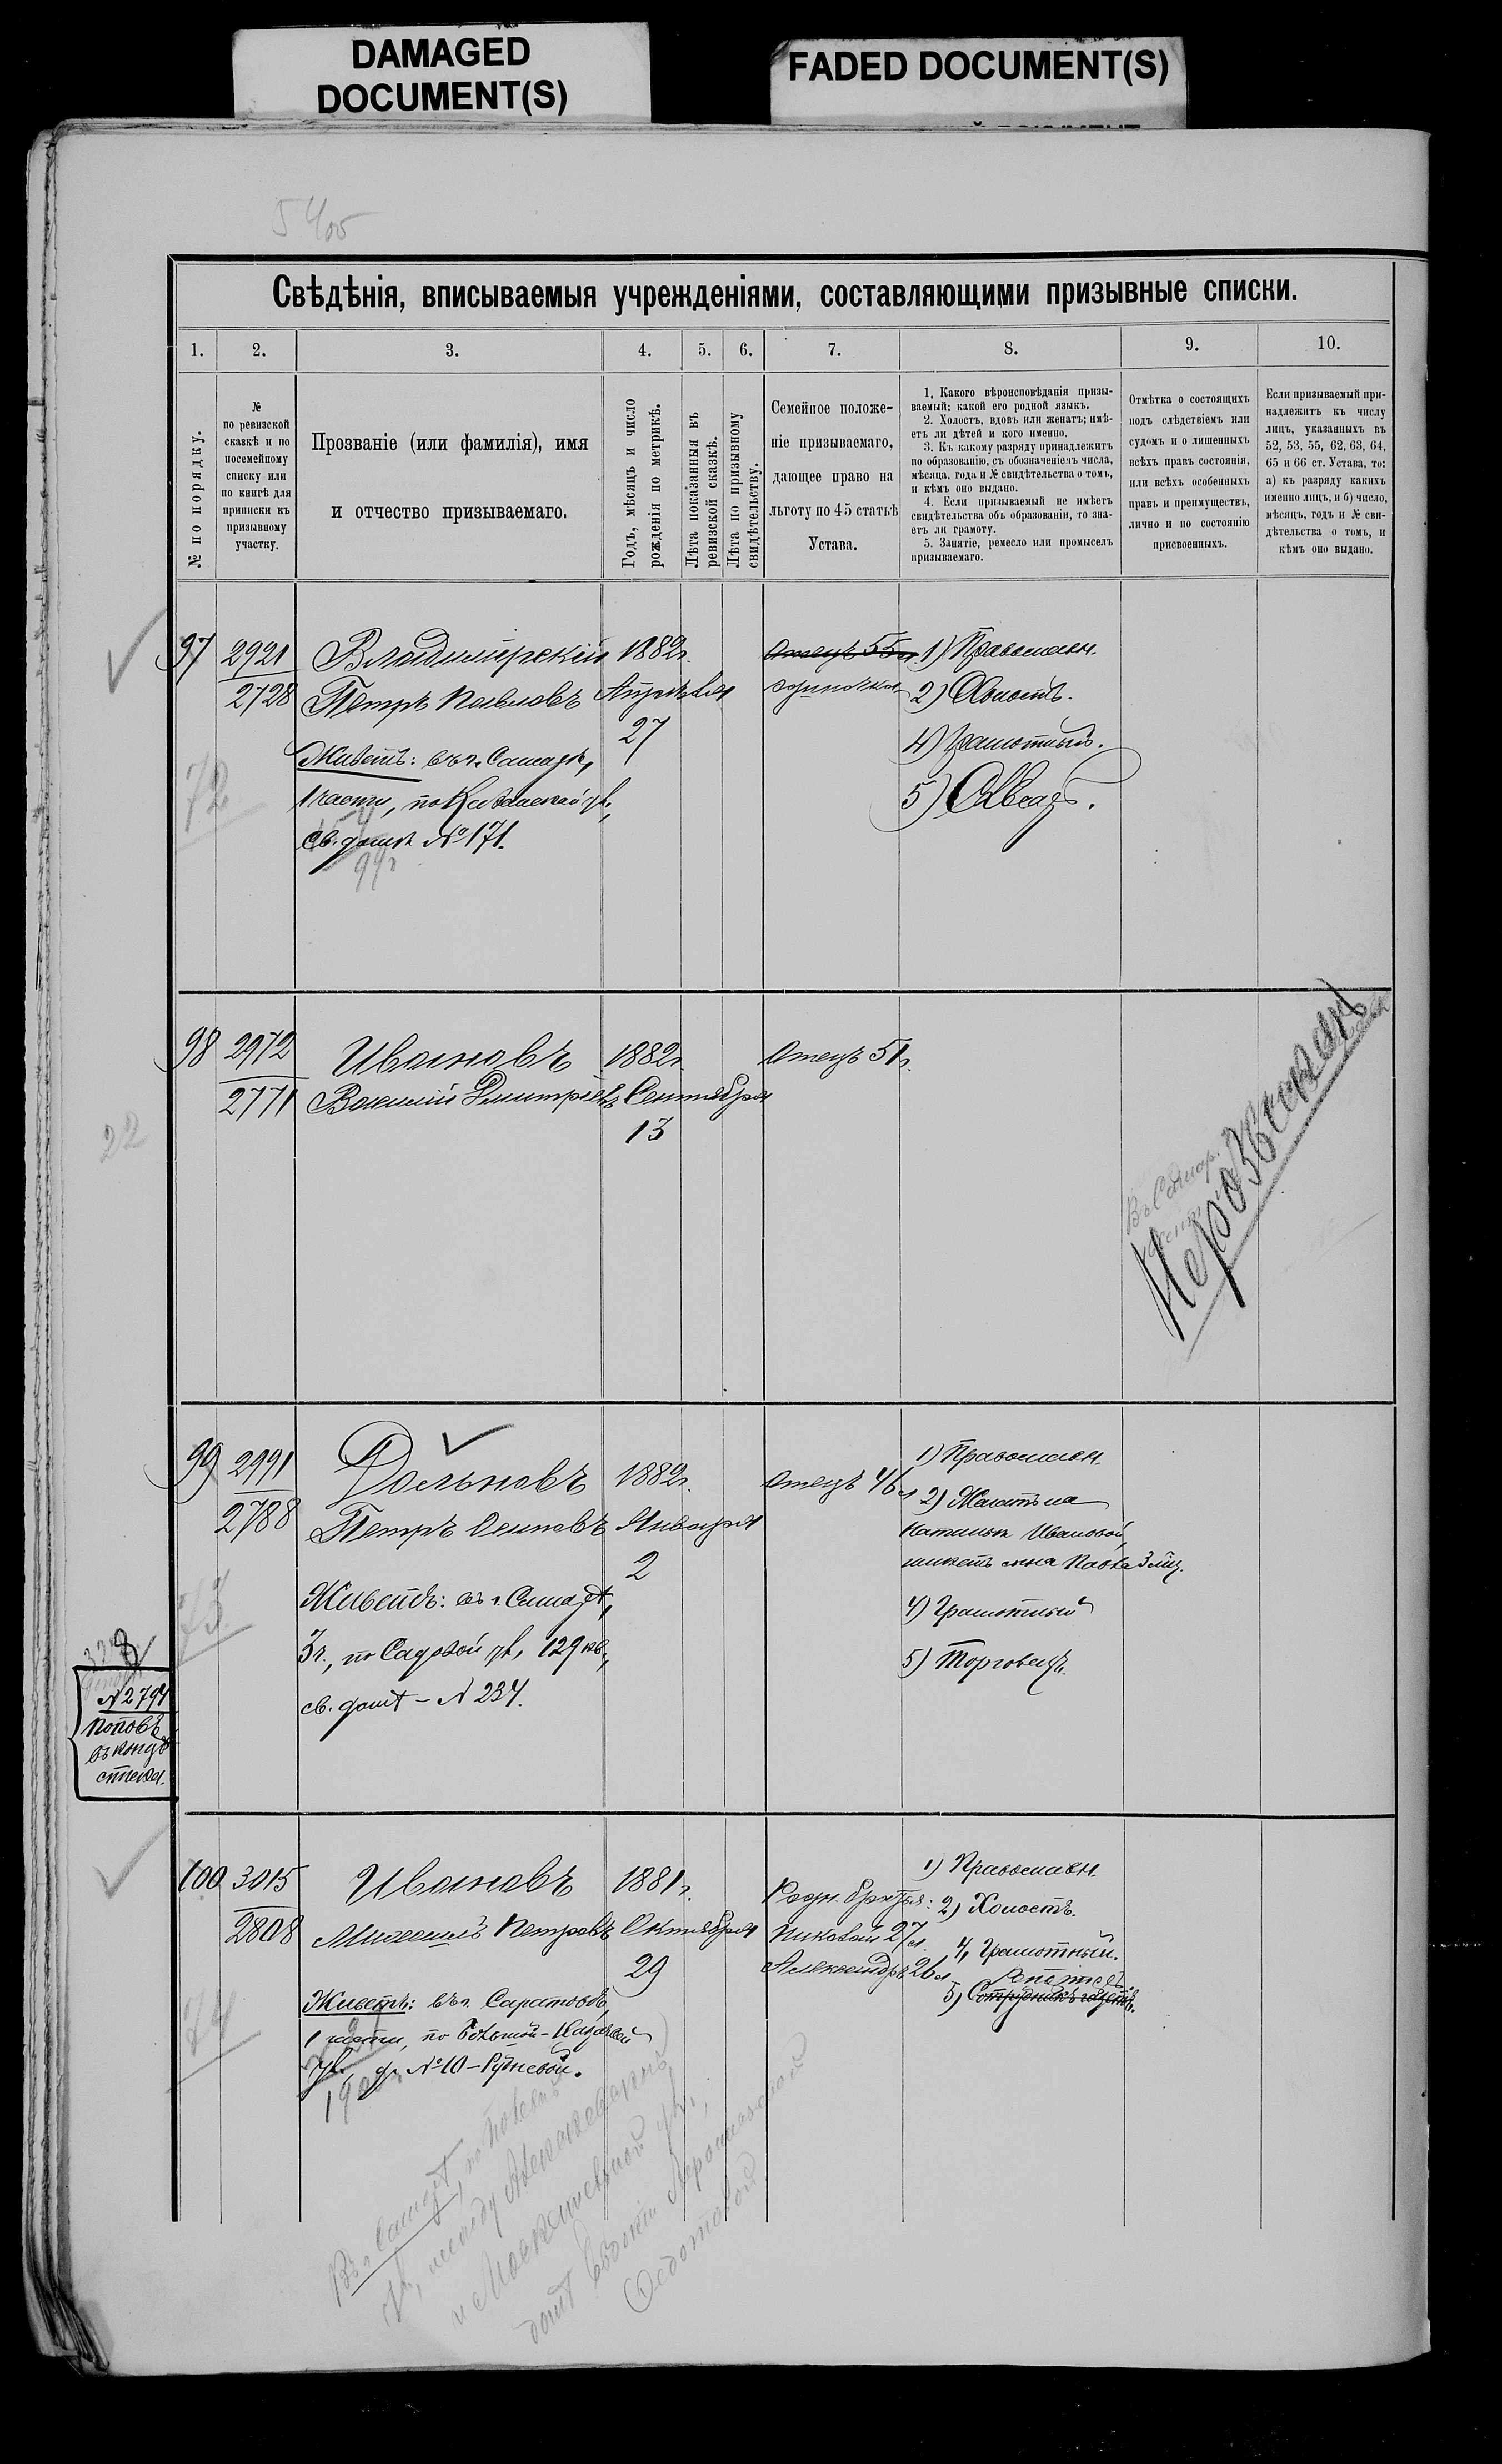 DAMAGED
DOCUMENT(S)
FADED DOCUMENT(S)
Свѣдѣнія, вписываемыя учрежденіями, составляющими призывные списки.
1.
2.
3.
4.
5.
6.
7.
8.
9.
10.
№ по порядку.
№
по ревизской
сказкѣ и по
посемейному
списку или
по книгѣ для
приписки къ
призывному
участку.
Прозваніе (или фамилія), имя
и отчество призываемаго.
Годъ, мѣсяцъ и число
рожденія по метрикѣ.
Лѣта показанныя въ
ревизской сказкѣ.
Лѣта по призывному
свидѣтельству.
Семейное положе-
ніе призываемаго,
дающее право на
льготу по 45 статьѣ
Устава.
1. Какого вѣроисповѣданія призы-
ваемый; какой его родной языкъ.
2. Холостъ, вдовъ или женатъ; имѣ-
етъ ли дѣтей и кого именно.
3. Къ какому разряду принадлежитъ
по образованію, съ обозначеніемъ числа,
мѣсяца, года и № свидѣтельства о томъ,
и кѣмъ оно выдано.
4. Если призываемый не имѣетъ
свидѣтельства объ образованіи, то зна-
етъ ли грамоту.
5. Занятіе, ремесло или промыселъ
призываемаго.
Отмѣтка о состоящихъ
подъ слѣдствіемъ или
судомъ и о лишенныхъ
всѣхъ правъ состоянія,
или всѣхъ особенныхъ
правъ и преимуществъ,
лично и по состоянію
присвоенныхъ.
Если призываемый при-
надлежитъ къ числу
лицъ, указанныхъ въ
52, 53, 55, 62, 63, 64,
65 и 66 ст. Устава, то:
а) къ разряду какихъ
именно лицъ, и б) число,
мѣсяцъ, годъ и № сви-
дѣтельства о томъ, и
кѣмъ оно выдано.
97
2921
2728
72
Владимірскій
Петръ Павловъ
Живетъ: въ г. Самарѣ,
1 части, по Казанской ул.,
св. домъ №171.
1882г.
Апрѣля
27
Отецъ 55 л.
одинокій
1) Православн.
2) Холостъ.
4) Грамотный.
5)
98
2972
2771
22
Ивановъ
Василій Дмитріевъ
1882г.
Сентября
13
Отецъ 51 г.
Въ Самар.
Неразысканъ
99
2991
2788
73
Дольновъ
Петръ Осиповъ
Живетъ: въ г. Самарѣ,
3 ч., по Садовой ул., 129 кв.,
св. домъ – N 234.
1882г.
Января
2
Отецъ 46 л.
1) Православн.
2) Женатъ на
Натальѣ Ивановой,
имѣетъ сына Павла 3 мѣс.
4) Грамотный
5) Торговецъ.
N2794
Поповъ
въ концѣ
списка.
100
3015
2808
74
Ивановъ
Михаилъ Петровъ
Живетъ: въ г. Саратовѣ,
1 части, по Большой-Казачьей
ул., д. №10 – Рудневой.
1881г.
Октября
29
Родн. братья:
Николай 27 л.
Александръ 26 л.
1) Православн.
2) Холостъ.
4) Грамотный.
5) Сотрудникъ газетъ.
Въ г. Самарѣ, по Полевой
ул., между Алексѣевской
и Москательной ул.,
домъ Евдокіи
Федотовой